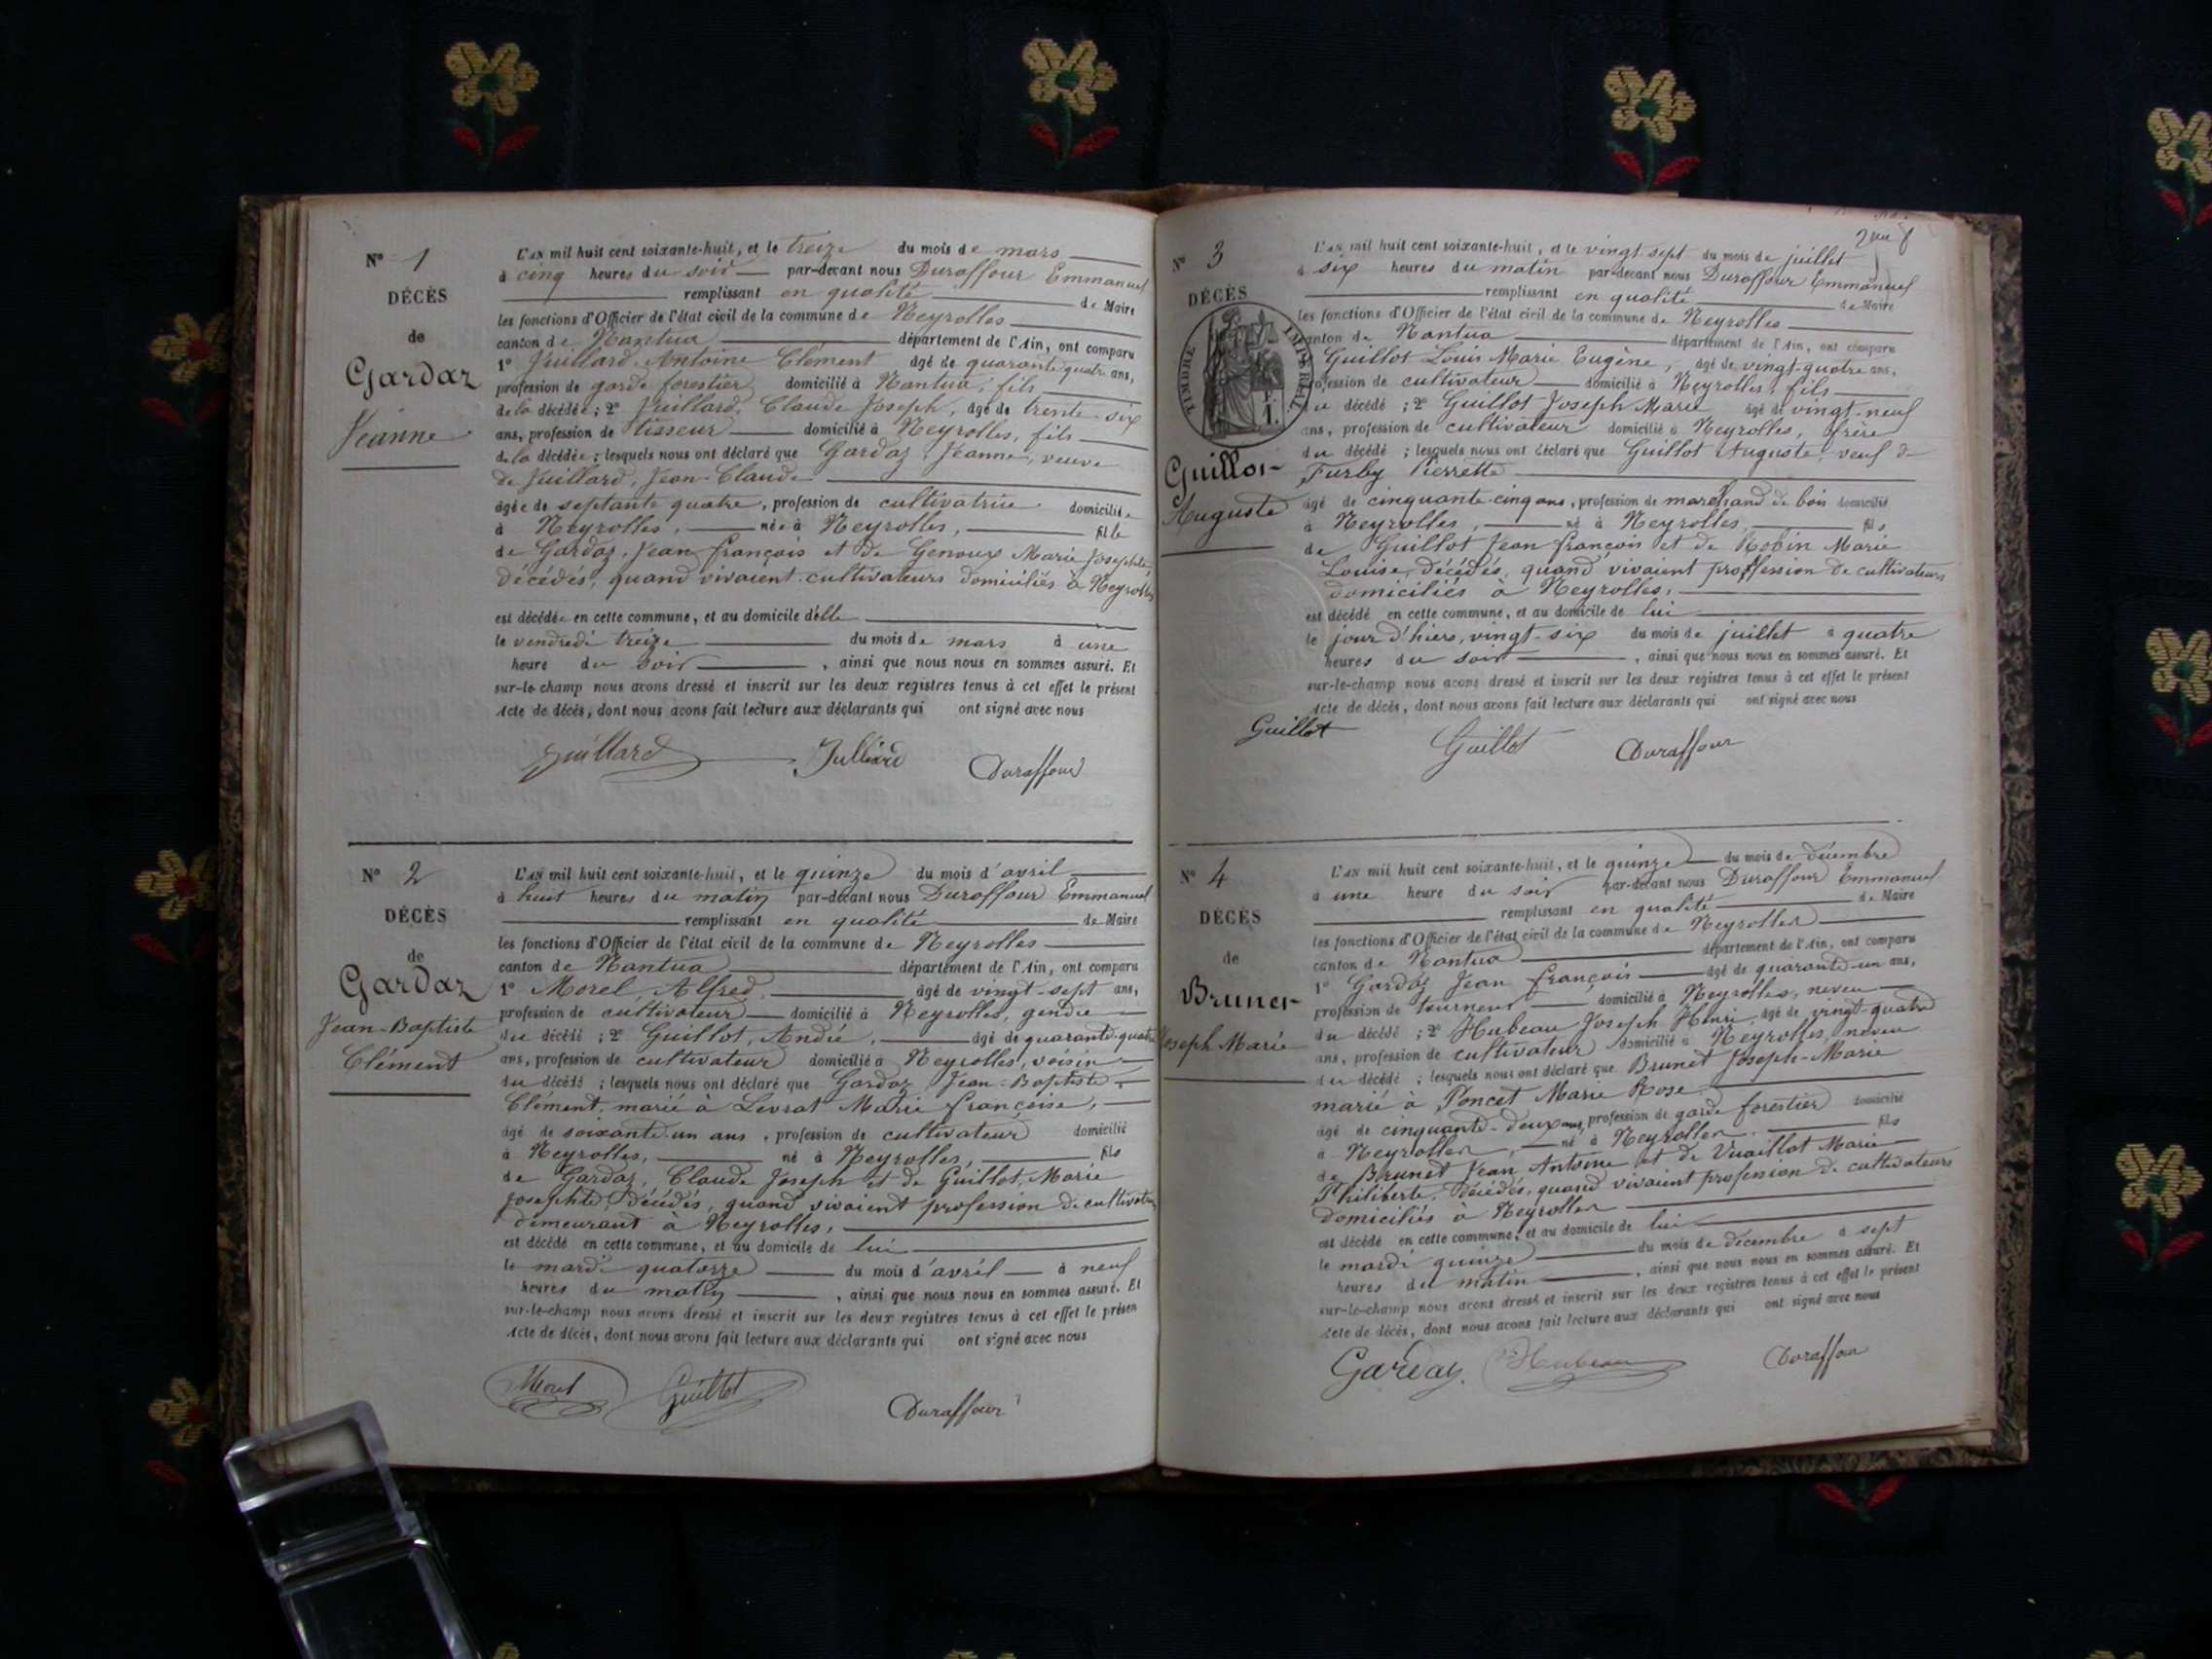 N° 1
DÉCÈS
de
Gardaz
Jeanne
L'AN mil huit cent soixante-huit, et le treize du mois de mars
à cinq heures du soir par-devant nous Duraffour Emmanuel
remplissant en qualité de Maire
les fonctions d'Officier de l'état civil de la commune de Neyrolles
canton de Nantua département de l'Ain, ont comparu
1° Juillard, Antoine Clément âgé de quarante quatre ans,
profession de garde forestier domicilié à Nantua, fils
de la décédée ; 2° Juillard, Claude Joseph, âgé de trente-six
ans, profession de tisseur domicilié à Neyrolles, fils
de la décédée ; lesquels nous ont déclaré que Gardaz, Jeanne, veuve
de Juillard, Jean-Claude
âgée de septante quatre, profession de cultivatrice domiciliée
à Neyrolles, née à Neyrolles, fille
de Gardaz, Jean françois et de Genoux Marie Josephte,
décédés, quand vivaient cultivateurs domiciliés à Neyrolles
est décédée en cette commune, et au domicile d'elle
le vendredi treize du mois de mars à une
heure du soir, ainsi que nous nous en sommes assuré. Et
sur-le-champ nous avons dressé et inscrit sur les deux registres tenus à cet effet le présent
Acte de décès, dont nous avons fait lecture aux déclarants qui ont signé avec nous
Juillard Julliard Duraffour
N° 2
DÉCÈS
de
Gardaz
Jean-Baptiste
Clément
L'AN mil huit cent soixante-huit, et le quinze du mois d'avril
à huit heures du matin par-devant nous Duraffour Emmanuel
remplissant en qualité de Maire
les fonctions d'Officier de l'état civil de la commune de Neyrolles
canton de Nantua département de l'Ain, ont comparu
1° Morel, Alfred, âgé de vingt-sept ans,
profession de cultivateur domicilié à Neyrolles, gendre
du décédé ; 2° Guillot, André, âgé de quarante-quatre
ans, profession de cultivateur domicilié à Neyrolles, voisin
du décédé ; lesquels nous ont déclaré que Gardaz, Jean-Baptiste
Clément, marié à Levrat Marie françoise,
âgé de soixante-un ans, profession de cultivateur domicilié
à Neyrolles, né à Neyrolles, fils
de Gardaz, Claude Joseph et de Guillot, Marie
Josephte, décédés, quand vivaient profession de cultivateurs
demeurant à Neyrolles,
est décédé en cette commune, et au domicile de lui
le mardi quatorze du mois d'avril à neuf
heures du matin, ainsi que nous nous en sommes assuré. Et
sur-le-champ nous avons dressé et inscrit sur les deux registres tenus à cet effet le présen
Acte de décès, dont nous avons fait lecture aux déclarants qui ont signé avec nous
Morel Guillot Duraffour
N° 3
DÉCÈS
TIMBRE IMPÉRIAL
F.
1.
Guillot
Auguste
L'AN mil huit cent soixante-huit, et le vingt-sept du mois de juillet
à six heures du matin par-devant nous Duraffour Emmanuel
remplissant en qualité de Maire
les fonctions d'Officier de l'état civil de la commune de Neyrolles
canton de Nantua département de l'Ain, ont comparu
Guillot Louis Marie Eugène, âgé de vingt-quatre ans,
profession de cultivateur domicilié à Neyrolles, fils
du décédé ; 2° Guillot Joseph Marie âgé de vingt-neuf
ans, profession de cultivateur domicilié à Neyrolles, frère
du décédé ; lesquels nous ont déclaré que Guillot Auguste, veuf de
Furby Pierrette
âgé de cinquante-cinq ans, profession de marchand de bois domicilié
à Neyrolles, né à Neyrolles, fils
de Guillot Jean françois et de Robin Marie
Louise, décédés, quand vivaient profession de cultivateurs
domiciliés à Neyrolles,
est décédé en cette commune, et au domicile de lui
le jour d'hiers, vingt-six du mois de juillet à quatre
heures du soir, ainsi que nous nous en sommes assuré. Et
sur-le-champ nous avons dressé et inscrit sur les deux registres tenus à cet effet le présent
Acte de décès, dont nous avons fait lecture aux déclarants qui ont signé avec nous
Guillot Guillot Duraffour
N° 4
DÉCÈS
de
Brunet
Joseph Marie
L'AN mil huit cent soixante-huit, et le quinze du mois de décembre
à une heure du soir par-devant nous Duraffour Emmanuel
remplissant en qualité de Maire
les fonctions d'Officier de l'état civil de la commune de Neyrolles
canton de Nantua département de l'Ain, ont comparu
1° Gardaz Jean françois âgé de quarante-un ans,
profession de tourneur domicilié à Neyrolles, neveu
du décédé ; 2° Hubeau Joseph Henri, âgé de vingt-quatre
ans, profession de cultivateur domicilié à Neyrolles, neveu
du décédé ; lesquels nous ont déclaré que Brunet Joseph-Marie
marié à Poncet Marie Rose
âgé de cinquante-deux ans, profession de garde forestier domicilié
à Neyrolles, né à Neyrolles. fils
de Brunet Jean Antoine et de Vuaillot Marie
Philiberte, décédés, quand vivaient profession de cultivateurs
domiciliés à Neyrolles
est décédé en cette commune, et au domicile de lui
le mardi quinze du mois de décembre à sept
heures du matin, ainsi que nous nous en sommes assuré. Et
sur-le-champ nous avons dressé et inscrit sur les deux registres tenus à cet effet le présent
Acte de décès, dont nous avons fait lecture aux déclarants qui ont signé avec nous
Gardaz. Hubeau Duraffour